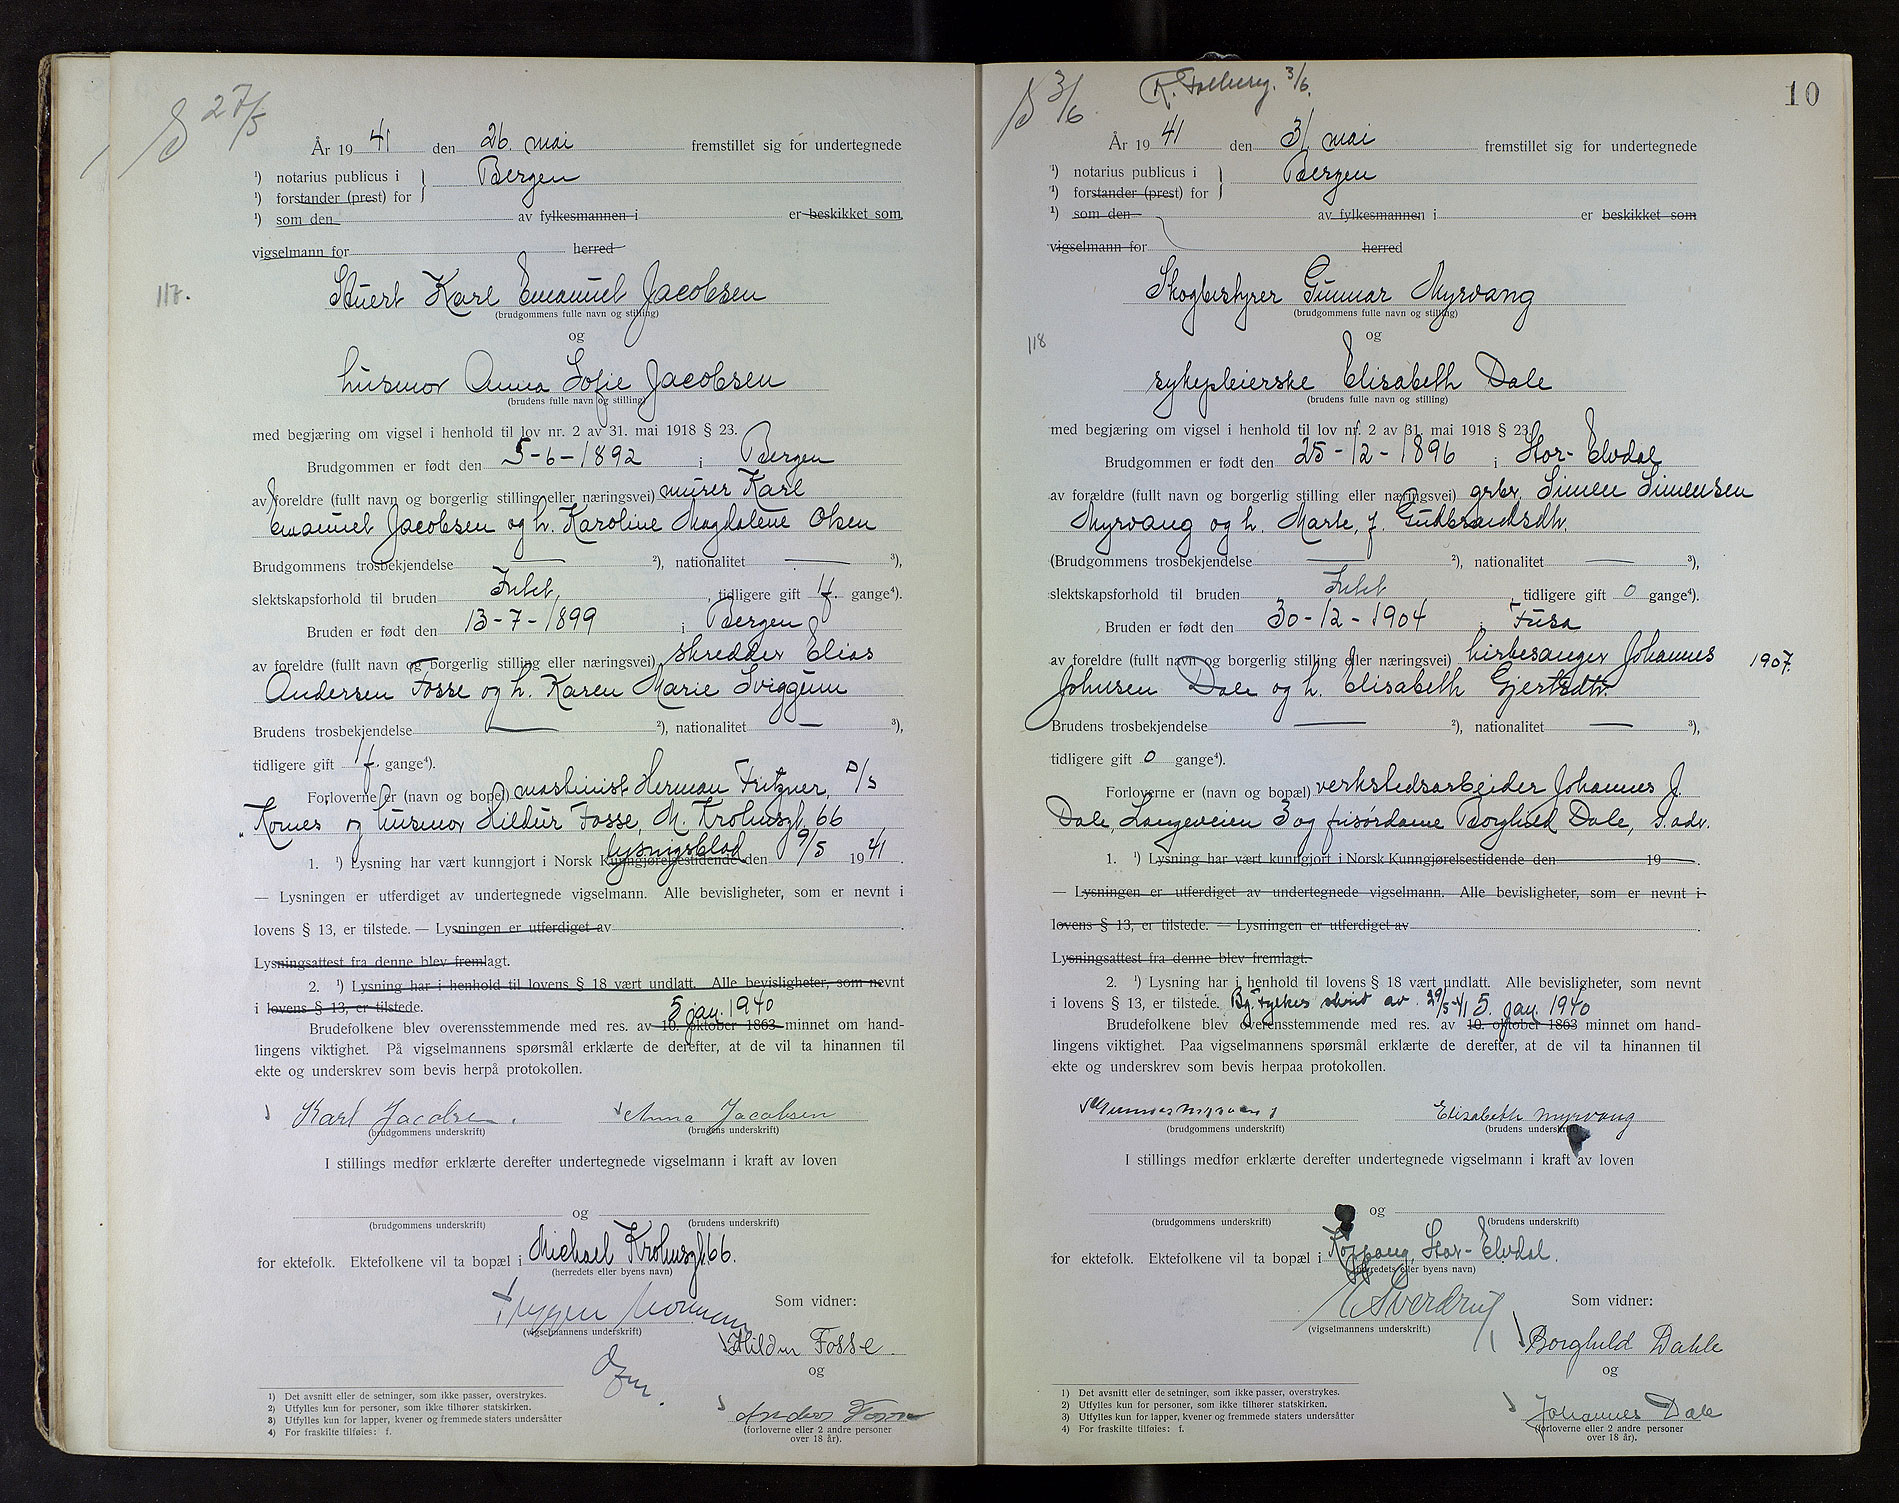 27/5
År 1941 den 26. mai fremstillet sig for undertegnede
¹) notarius publicus i } Bergen
¹) forstander (prest) for
¹) som den av fylkesmannen i er beskikket som
vigselmann for herred
117.
Stuert Karl Emanuel Jacobsen
(brudgommens fulle navn og stilling)
og
husmor Anna Sofie Jacobsen
(brudens fulle navn og stilling)
med begjæring om vigsel i henhold til lov nr. 2 av 31. mai 1918 § 23.
Brudgommen er født den 5-6-1892 i Bergen
av foreldre (fullt navn og borgerlig stilling eller næringsvei) murer Karl
Emanuel Jacobsen og h. Karoline Magdalene Olsen
Brudgommens trosbekjendelse — ²), nationalitet — ³),
slektskapsforhold til bruden Intet, tidligere gift 1 f. gange⁴).
Bruden er født den 13-7-1899 i Bergen
av foreldre (fullt navn og borgerlig stilling eller næringsvei) skredder Elias
Andersen Fosse og h. Karen Marie Sviggum
Brudens trosbekjendelse — ²), nationalitet — ³),
tidligere gift 1 f. gange⁴).
Forloverne er (navn og bopel) maskinist Herman Fritzner, D/S
"Kornes og husmor Hildur Fosse, M. Krohnsgt. 66
lysningsblad
1. ¹) Lysning har vært kunngjort i Norsk Kunngjørelsestidende den 9/5 1941.
— Lysningen er utferdiget av undertegnede vigselmann. Alle bevisligheter, som er nevnt i
lovens § 13, er tilstede. — Lysningen er utferdiget av .
Lysningsattest fra denne blev fremlagt.
2. ¹) Lysning har i henhold til lovens § 18 vært undlatt. Alle bevisligheter, som nevnt
i lovens § 13, er tilstede. 5 jan. 1940
Brudefolkene blev overensstemmende med res. av 10. oktober 1863 minnet om hand-
lingens viktighet. På vigselmannens spørsmål erklærte de derefter, at de vil ta hinannen til
ekte og underskrev som bevis herpå protokollen.
Karl Jacobsen. Anna Jacobsen
(brudgommens underskrift) (brudens underskrift)
I stillings medfør erklærte derefter undertegnede vigselmann i kraft av loven
og
(brudgommens underskrift) (brudens underskrift)
for ektefolk. Ektefolkene vil ta bopæl i Michael Krohnsgt. 66.
(herredets eller byens navn)
Som vidner:
(vigselmannens underskrift)
Hildur Fosse.
og
Anders Fosse
(forloverne eller 2 andre personer
over 18 år).
¹) Det avsnitt eller de setninger, som ikke passer, overstrykes.
²) Utfylles kun for personer, som ikke tilhører statskirken.
³) Utfylles kun for lapper, kvener og fremmede staters undersåtter
⁴) For fraskilte tilføies: f.
3/6 3/6.
10
År 1941 den 31 mai fremstillet sig for undertegnede
¹) notarius publicus i } Bergen
¹) forstander (prest) for
¹) som den av fylkesmannen i er beskikket som
vigselmann for herred
Skogbestyrer Gunnar Myrvang
(brudgommens fulle navn og stilling)
118
og
sykepleierske Elisabeth Dale
(brudens fulle navn og stilling)
med begjæring om vigsel i henhold til lov nr. 2 av 31. mai 1918 § 23.
Brudgommen er født den 25-12-1896 i Stor-Elvdal
av forældre (fullt navn og borgerlig stilling eller næringsvei) grbr. Simen Simensen
Myrvang og h. Marte, f. Gudbrandsdtr.
(Brudgommens trosbekjendelse — ²), nationalitet — ³),
slektskapsforhold til bruden Intet, tidligere gift 0 gange⁴).
Bruden er født den 30-12-1904 i Fusa
av foreldre (fullt navn og borgerlig stilling eller næringsvei) kirkesanger Johannes 1907.
Johnsen Dale og h. Elisabeth Gjertsdtr.
Brudens trosbekjendelse — ²), nationalitet — ³),
tidligere gift 0 gange⁴).
Forloverne er (navn og bopæl) verkstedsarbeider Johannes J.
Dale, Langeveien 3 og frisørdame Borghild Dale, s. adr.
1. ¹) Lysning har vært kunngjort i Norsk Kunngjørelsestidende den 19 .
— Lysningen er utferdiget av undertegnede vigselmann. Alle bevisligheter, som er nevnt i
lovens § 13, er tilstede. — Lysningen er utferdiget av .
Lysningsattest fra denne blev fremlagt.
2. ¹) Lysning har i henhold til lovens § 18 vært undlatt. Alle bevisligheter, som nevnt
i lovens § 13, er tilstede. Bg. fylkes skriv av 29/5-41 5. jan. 1940
Brudefolkene blev overensstemmende med res. av 10. oktober 1863 minnet om hand-
lingens viktighet. Paa vigselmannens spørsmål erklærte de derefter, at de vil ta hinannen til
ekte og underskrev som bevis herpaa protokollen.
Gunnar Myrvang Elisabeth Myrvang
(brudgommens underskrift) (brudens underskrift)
I stillings medfør erklærte derefter undertegnede vigselmann i kraft av loven
og
(brudgommens underskrift) (brudens underskrift)
for ektefolk. Ektefolkene vil ta bopæl i Koppang, Stor-Elvdal.
(herredets eller byens navn)
Sverdrup Som vidner:
(vigselmannens underskrift.)
Borghild Dahle
og
Johannes Dale
(forloverne eller 2 andre personer
over 18 år).
1) Det avsnitt eller de setninger, som ikke passer, overstrykes.
2) Utfylles kun for personer, som ikke tilhører statskirken.
3) Utfylles kun for lapper, kvener og fremmede staters undersåtter
4) For fraskilte tilføies: f.